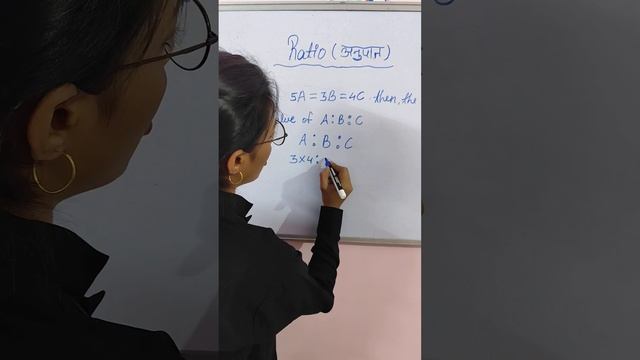 Ratio (अनुपात)
5A = 3B = 4C then, the
of A:B:C
A : B : C
3×4 :